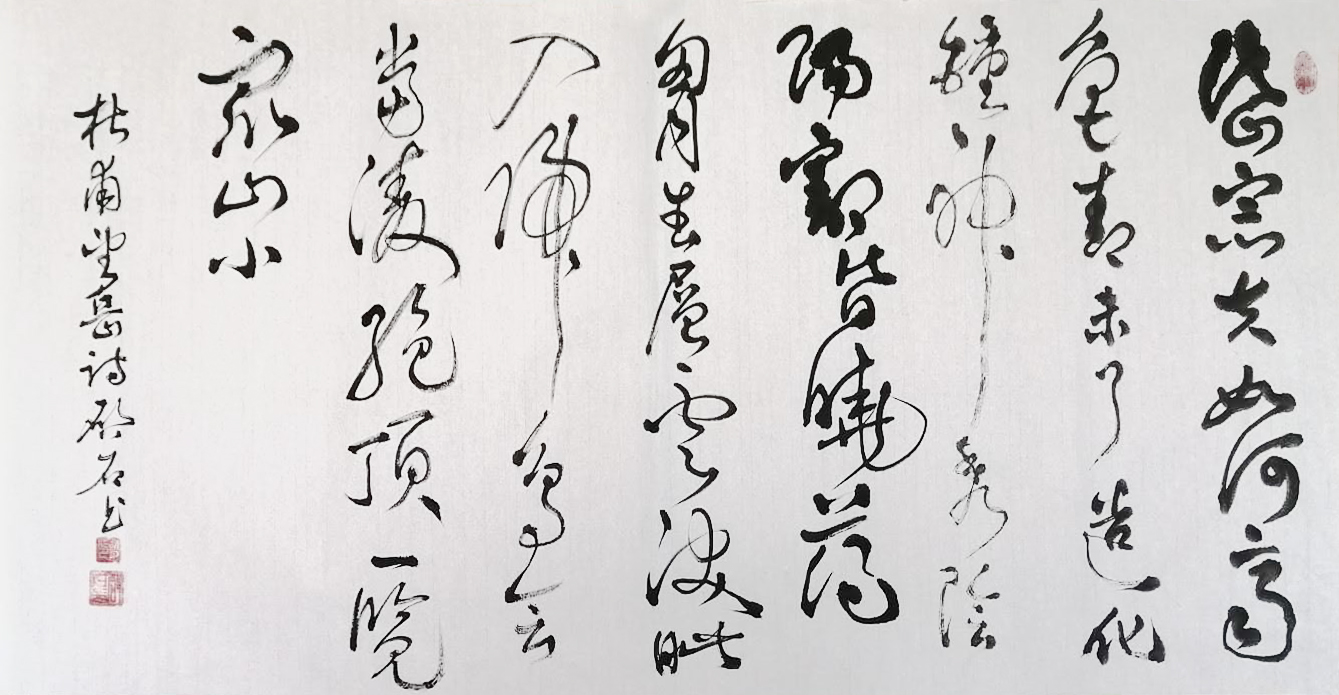 岱宗夫如何齊
魯青未了造化
鍾神秀陰
陽割昏曉蕩
胷生層雲決眥
入歸鳥会
當凌絕頂一覽
眾山小
杜甫望岳詩 石书